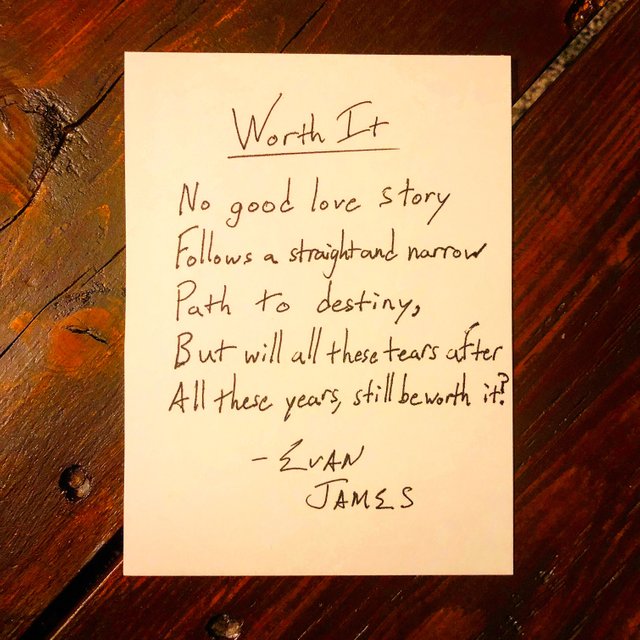 Worth It
No good love story
Follows a straight and narrow
Path to destiny,
But will all these tears after
All these years, still be worth it?
- EVAN
JAMES